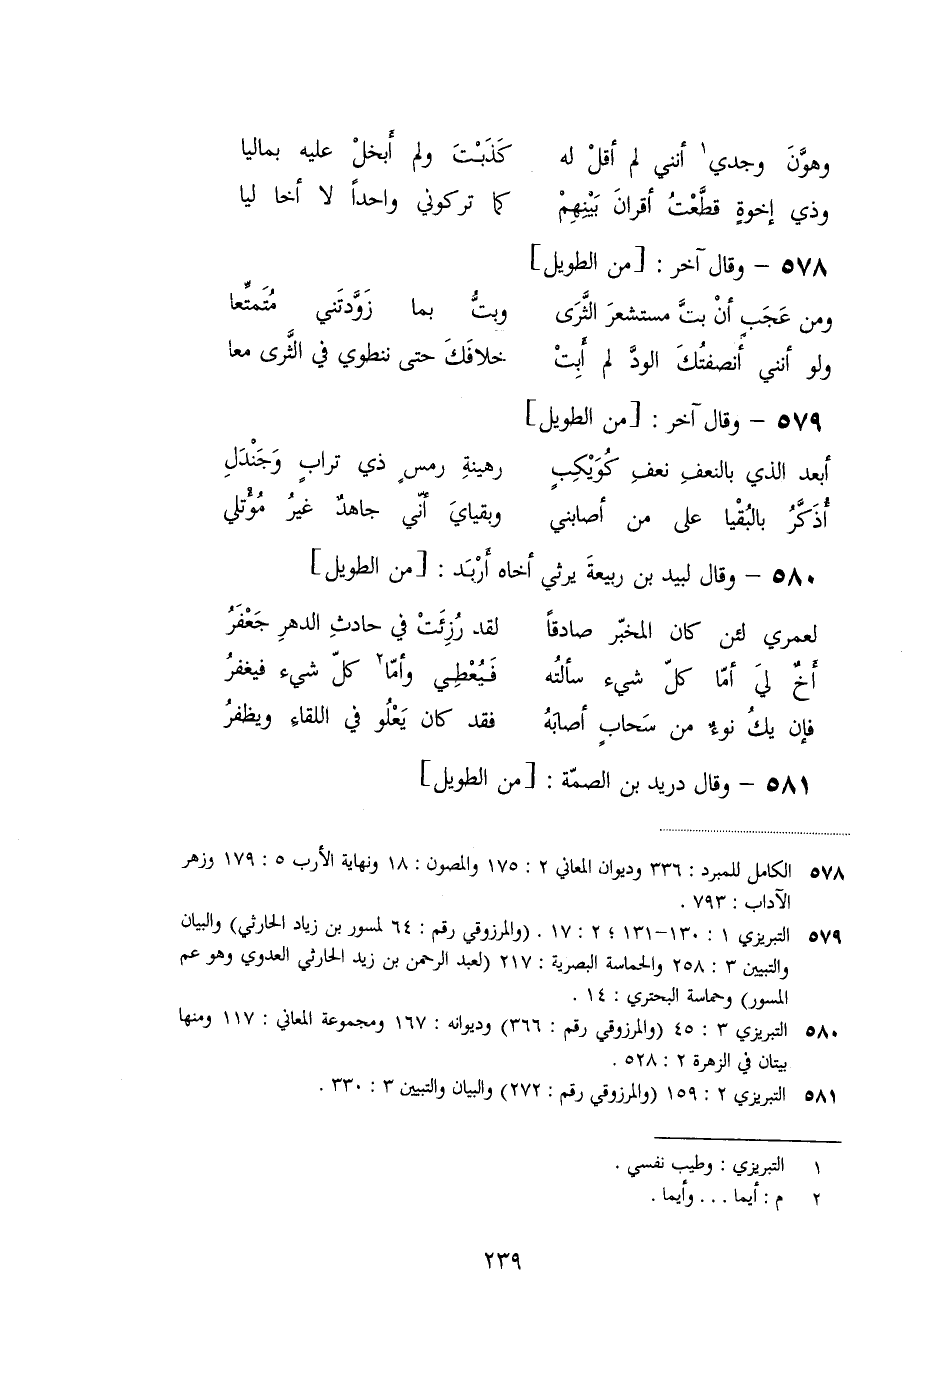 وهوَّنَ وجدي١ أنني لم أقلْ له كَذَبْتَ ولم أَبخلْ عليه بماليا
وذي إخوةٍ قطَّعْتُ أقرانَ بَيْنِهِمْ كما تركوني واحداً لا أخا ليا
٥٧٨ – وقال آخر : [من الطويل]
ومن عَجَبٍ أنْ بتَّ مستشعرَ الثَّرَى وبتُّ بما زَوَّدتَني مُتَمتِّعا
ولو أنني أنصفتُكَ الودَّ لم أَبِتْ خلافَكَ حتى ننطوي في الثَّرى معا
٥٧٩ – وقال آخر : [من الطويل]
أبعد الذي بالنعفِ نعفِ كُوَيْكِبٍ رهينةِ رمسٍ ذي ترابٍ وَجَنْدَلِ
أُذَكَّرُ بالبُقْيا على من أصابني وبقيايَ أنّي جاهدٌ غيرُ مُؤْتلي
٥٨٠ – وقال لبيد بن ربيعةَ يرثي أخاه أَرْبَد : [من الطويل]
لعمري لئن كان المخبّر صادقاً لقد رُزِئَتْ في حادثِ الدهرِ جَعْفَرُ
أَخٌ ليَ أمّا كلّ شيء سألتُه فَيُعْطِي وأمّا٢ كلّ شيء فيغفرُ
فإن يكُ نوءٌ من سَحابٍ أصابَهُ فقد كان يَعْلُو في اللقاءِ ويظفرُ
٥٨١ – وقال دريد بن الصمّة : [من الطويل]
٥٧٨ الكامل للمبرد : ٣٣٦ وديوان المعاني ٢ : ١٧٥ والمصون : ١٨ ونهاية الأرب ٥ : ١٧٩ وزهر
الآداب : ٧٩٣ .
٥٧٩ التبريزي ١ : ١٣٠–١٣١ ؛ ٢ : ١٧ . (والمرزوقي رقم : ٦٤ لمسور بن زياد الحارثي) والبيان
والتبيين ٣ : ٢٥٨ والحماسة البصرية : ٢١٧ (لعبد الرحمن بن زيد الحارثي العدوي وهو عم
المسور) وحماسة البحتري : ١٤ .
٥٨٠ التبريزي ٣ : ٤٥ (والمرزوقي رقم : ٣٦٦) وديوانه : ١٦٧ ومجموعة المعاني : ١١٧ ومنها
بيتان في الزهرة ٢ : ٥٢٨ .
٥٨١ التبريزي ٢ : ١٥٩ (والمرزوقي رقم : ٢٧٢) والبيان والتبيين ٣ : ٣٣٠ .
١ التبريزي : وطيب نفسي .
٢ م : أيما ... وأيما .
٢٣٩